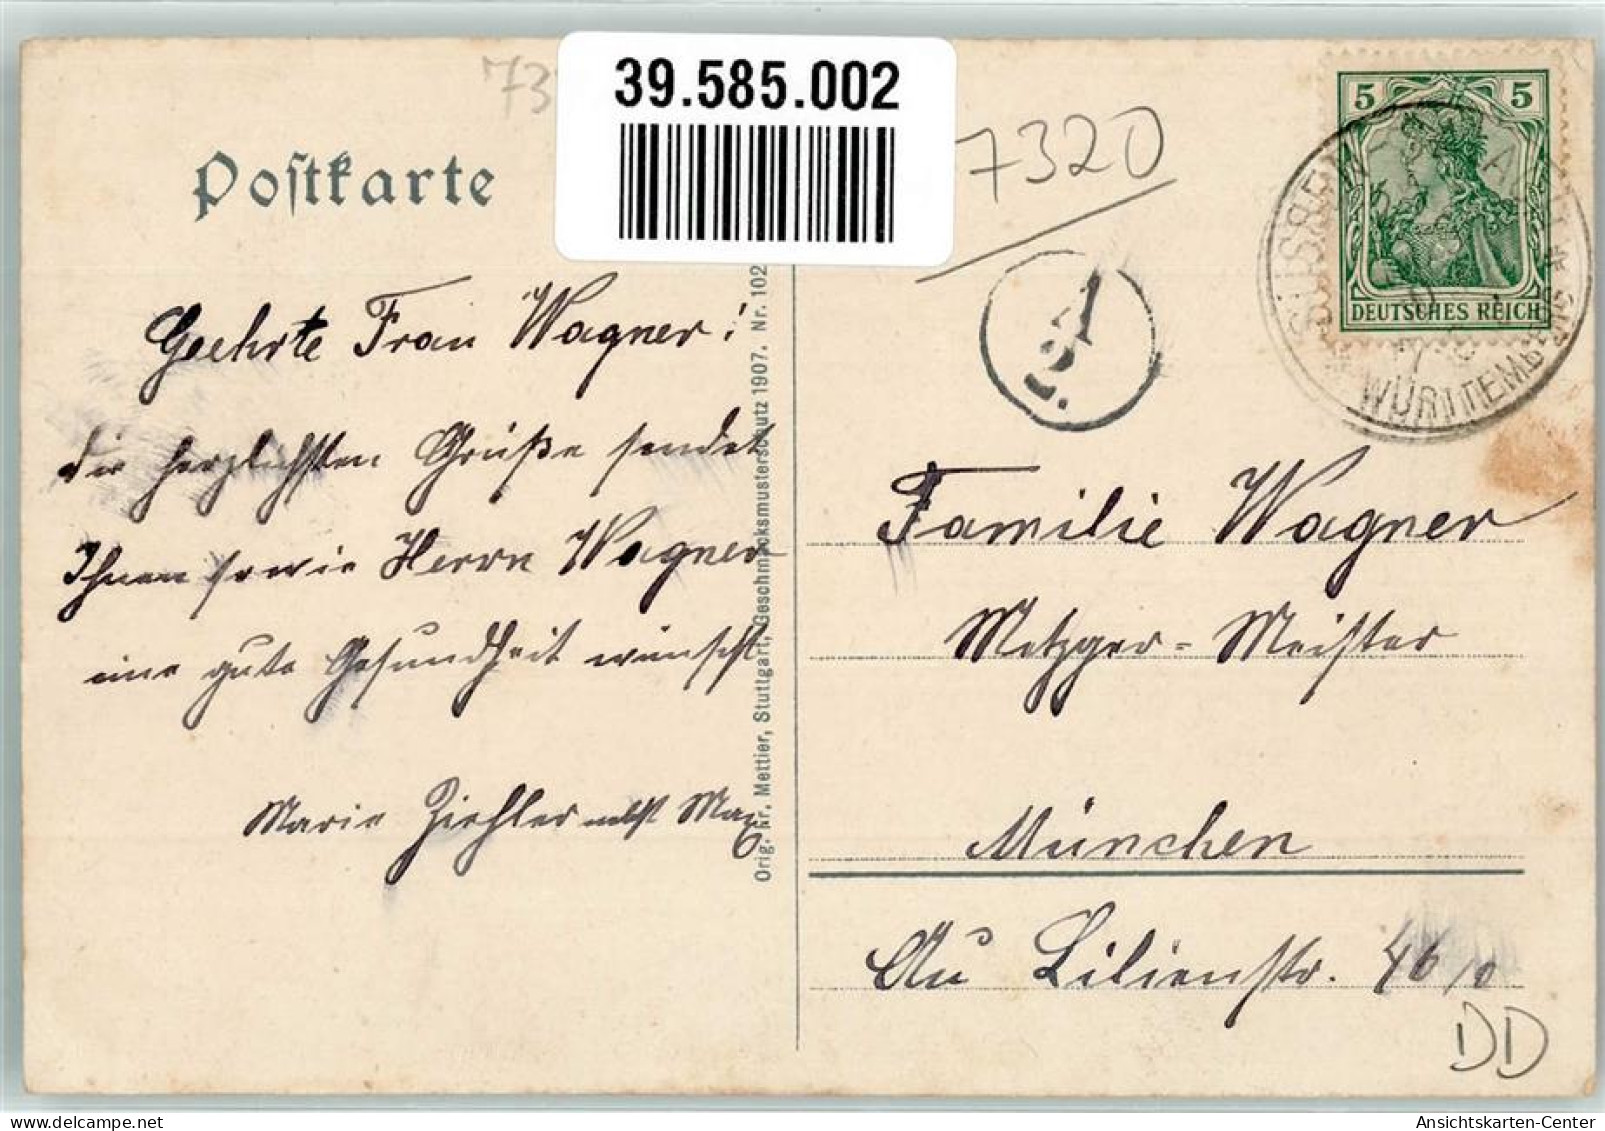 39.585.002
73
7320
Postkarte
5 5
DEUTSCHES REICH
SÜSSEN
WÜRTTEMBERG
A
2.
Geehrte Frau Wagner!
die herzlichsten Grüße sendet
Ihnen sowie Herrn Wagner
eine gute Gesundheit wünscht
Marie Ziehler nebst Max
Orig. Fr. Mettier, Stuttgart, Geschmacksmusterschutz 1907. Nr. 102
Familie Wagner
Metzger-Meister
München
Au Lilienstr. 46/0
DD
Ansichtskarten-Center